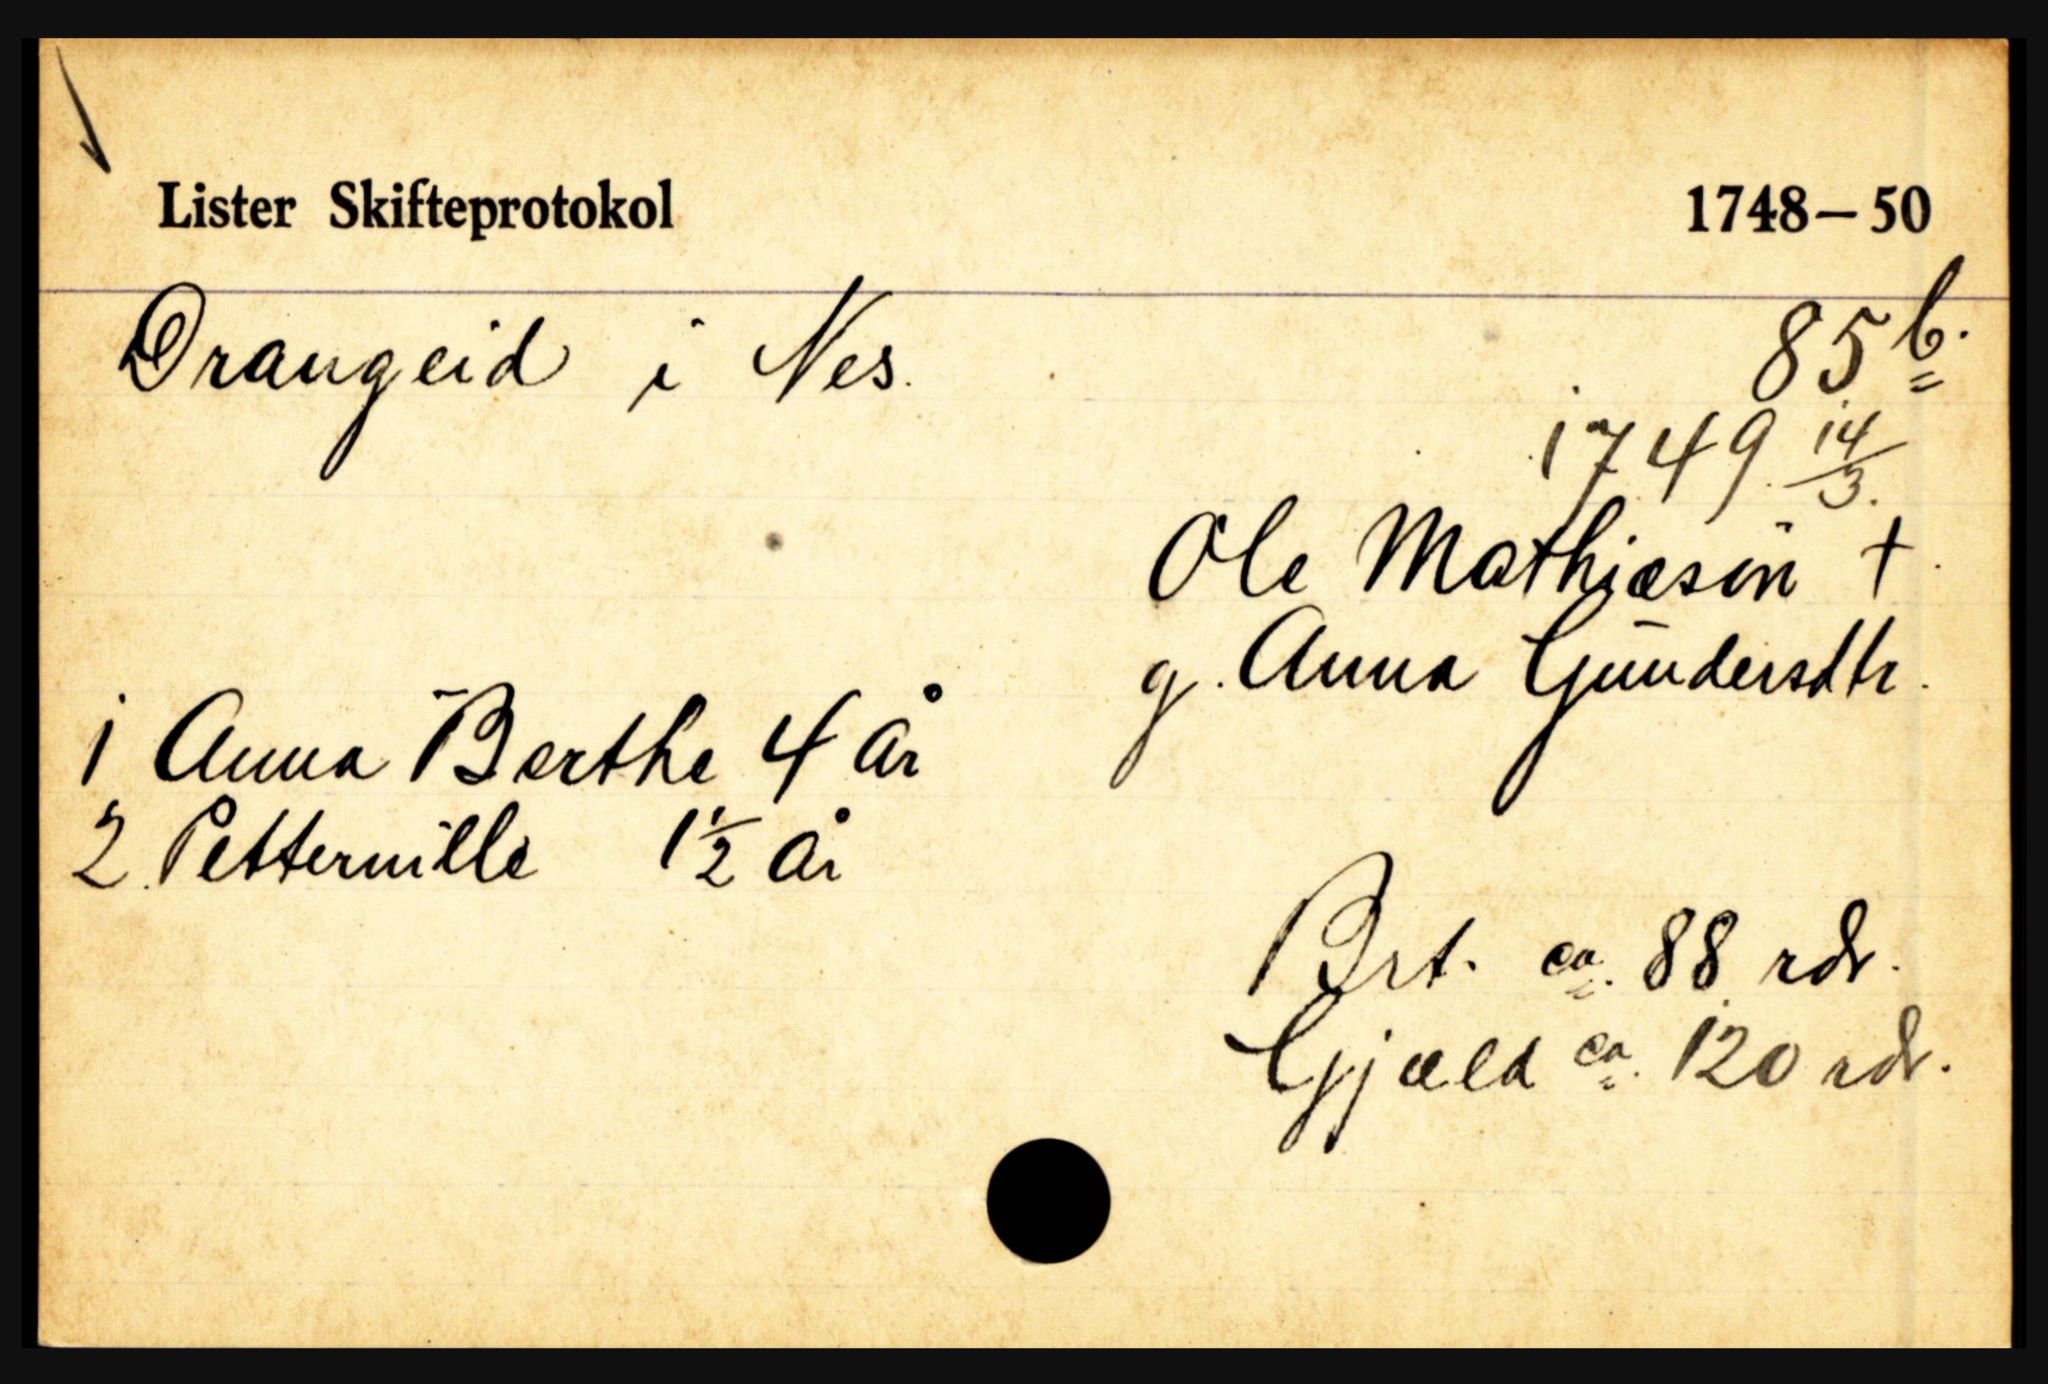 Lister Skifteprotokol 1748-50
Drangeid i Nes. 85 b.
1749 14/3.
Ole Mathiesøn †
g. Anna Gundersdtr.
1 Anna Berthe 4 år
2. Petternille 1 1/2 år
Brt. ca. 88 rdr.
Gjæld ca. 120 rdr.